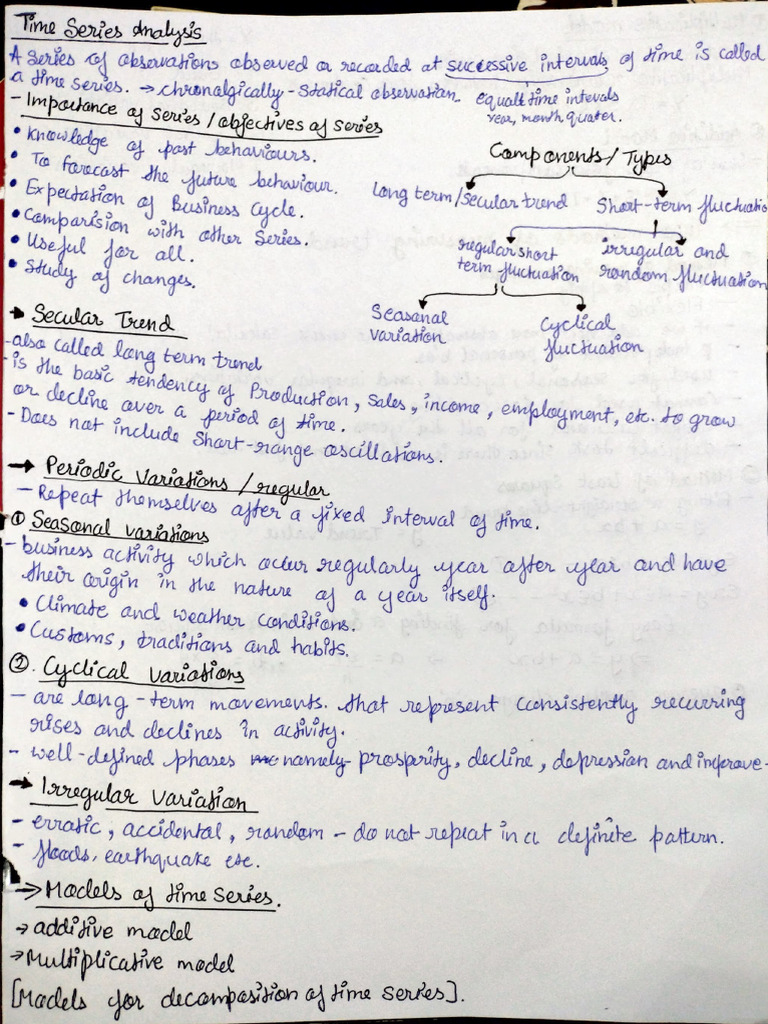 Time Series Analysis
A series of observations observed or recorded at successive intervals of time is called
a time series. → chronalgically - statical observation. equall time intevals
year, month quater.
- Importance of series / objectives of series
• Knowledge of past behaviours.
• To forecast the future behaviour.
• Expectation of Business Cycle.
• Comparision with other Series.
• Useful for all.
• Study of changes.
Components / Types
Long term/secular trend
Short-term fluctuatio
regular short
term fluctuation
irregular and
random fluctuation
Seasanal
variation
Cyclical
fluctuation
→ Secular Trend
- also called long term trend
- is the basic tendency of Production, Sales, income, employment, etc. to grow
or decline over a period of time.
- Does not include Short-range oscillations.
→ Periodic Variations / regular
- Repeat themselves after a fixed interval of time.
① Seasonal variations
- business activity which occur regularly year after year and have
their origin in the nature of a year itself.
• Climate and weather conditions.
• Customs, traditions and habits.
②. Cyclical variations
- are long-term movements. that represent consistently recurring
rises and declines in activity.
- well-defined phases namely prosperity, decline, depression and improve-
→ Irregular Variation
- erratic, accidental, random - do not repeat in a definite pattern.
- floods, earthquake etc.
→ Models of time series.
→ additive model
→ Multiplicative model
[Models for decomposition of time series].